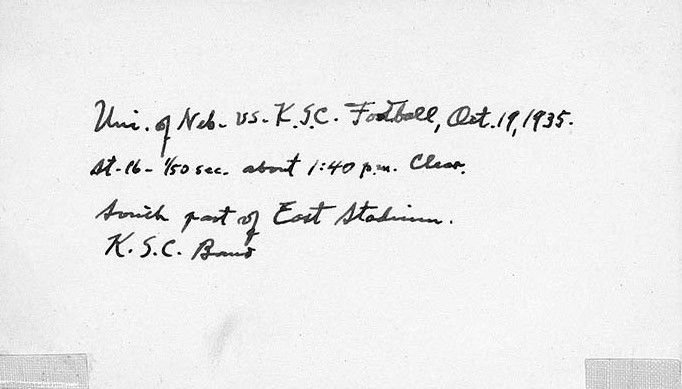 Uni. of Neb. vs. K.S.C. Football, Oct. 19, 1935.
St-16- 1/50 sec. about 1:40 p.m. Clear.
South part of East Stadium.
K.S.C. Band